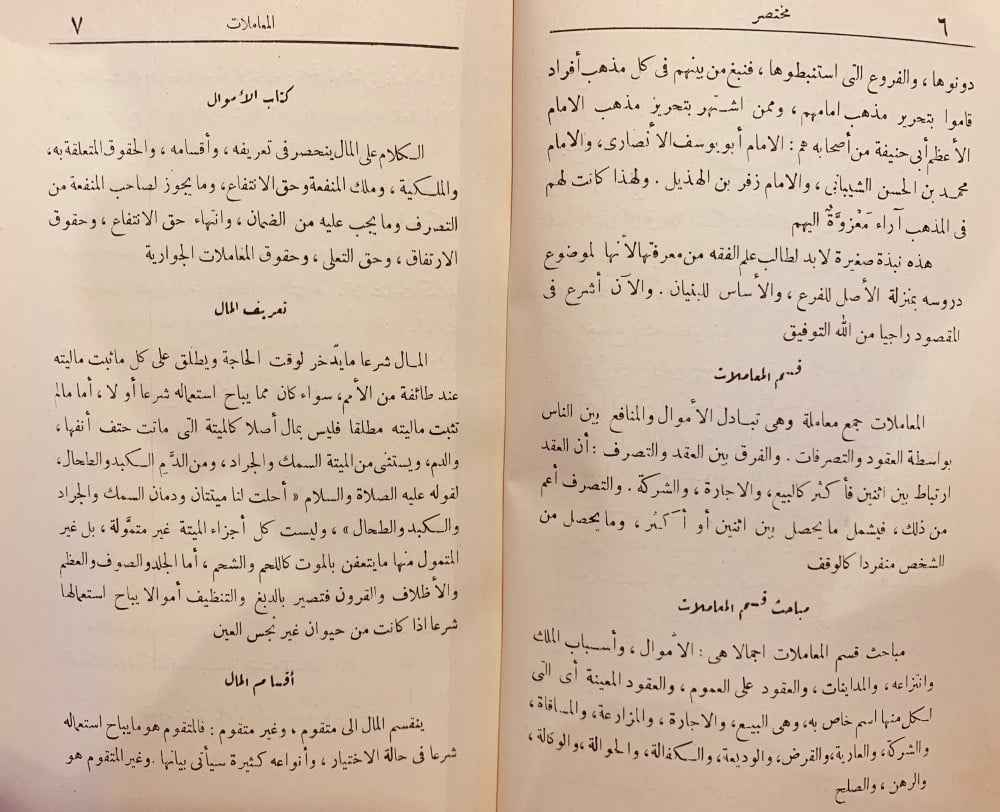 مختصر
٦
دونوها ، والفروع التى استنبطوها ، فنبغ من بينهم فى كل مذهب أفراد
قاموا بتحرير مذهب امامهم ، وممن اشتهر بتحريز مذهب الامام
الأعظم أبى حنيفة من أصحابه هم : الامام أبو يوسف الأنصارى ، والامام
محمد بن الحسن الشيبانى ، والامام زفر بن الهذيل . ولهذا كانت لهم
فى المذهب آراء مَعْزوَّةٌ اليهم
هذه نبذة صغيرة لابد لطالب علم الفقه من معرفتها لأنها لموضوع
دروسه بمنزلة الأصل للفرع ، والأساس للبنيان . والآن أشرع فى
المقصود راجيا من الله التوفيق
قسم المعاملات
المعاملات جمع معاملة وهى تبادل الأموال والمنافع بين الناس
بواسطة العقود والتصرفات . والفرق بين العقد والتصرف : أن العقد
ارتباط بين اثنين فأكثر كالبيع ، والاجارة ، والشركة . والتصرف أعم
من ذلك ، فيشمل ما يحصل بين اثنين أو أكثر ، وما يحصل من
الشخص منفردا كالوقف
مباحث قسم المعاملات
مباحث قسم المعاملات اجمالا هى : الأموال ، وأسباب الملك
وانتزاعه ، والمداينات ، والعقود على العموم ، والعقود المعينة أى التى
لكل منها اسم خاص به ، وهى البيع ، والاجارة ، والمزارعة ، والمساقاة ،
والشركة ، والعارية ، والقرض ، والوديعة ، والكفالة ، والحوالة ، والوكالة ،
والرهن ، والصلح
المعاملات
٧
كتاب الأموال
الكلام على المال ينحصر فى تعريفه ، وأقسامه ، والحقوق المتعلقة به ،
والملكية ، وملك المنفعة وحق الانتفاع ، وما يجوز لصاحب المنفعة من
التصرف وما يجب عليه من الضمان ، وانتهاء حق الانتفاع ، وحقوق
الارتفاق ، وحق التعلى ، وحقوق المعاملات الجوارية
تعريف المال
المال شرعا ما يدّخر لوقت الحاجة ويطلق على كل ما ثبت ماليته
عند طائفة من الأمم ، سواء كان مما يباح استعماله شرعا أو لا ، أما مالم
تثبت ماليته مطلقا فليس بمال أصلا كالميتة التى ماتت حتف أنفها ،
والدم ، ويستثنى من الميتة السمك والجراد ، ومن الدَّم الكبد والطحال ،
لقوله عليه الصلاة والسلام « أحلت لنا ميتتان ودمان السمك والجراد
والكبد والطحال » ، وليست كل أجزاء الميتة غير متموَّلة ، بل غير
المتمول منها ما يتعفن بالموت كاللحم والشحم ، أما الجلد والصوف والعظم
والأظلاف والقرون فتصير بالدبغ والتنظيف أموالا يباح استعمالها
شرعا اذا كانت من حيوان غير نجس العين
أقسام المال
ينقسم المال الى متقوم ، وغير متقوم : فالمتقوم هو ما يباح استعماله
شرعا فى حالة الاختيار ، وأنواعه كثيرة سيأتى بيانها . وغير المتقوم هو